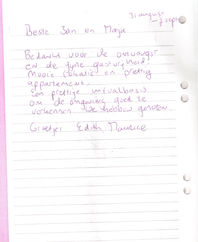 31 augustus
- 7 sept
Beste Jan en Marja
Bedankt voor de ontvangst
en de fijne gastvrijheid!
Mooie locatie en prettig
appartement.
Een prettige uitvalbasis
om de omgeving goed te
verkennen. We hebben genoten.
Groetjes Edith Maurice